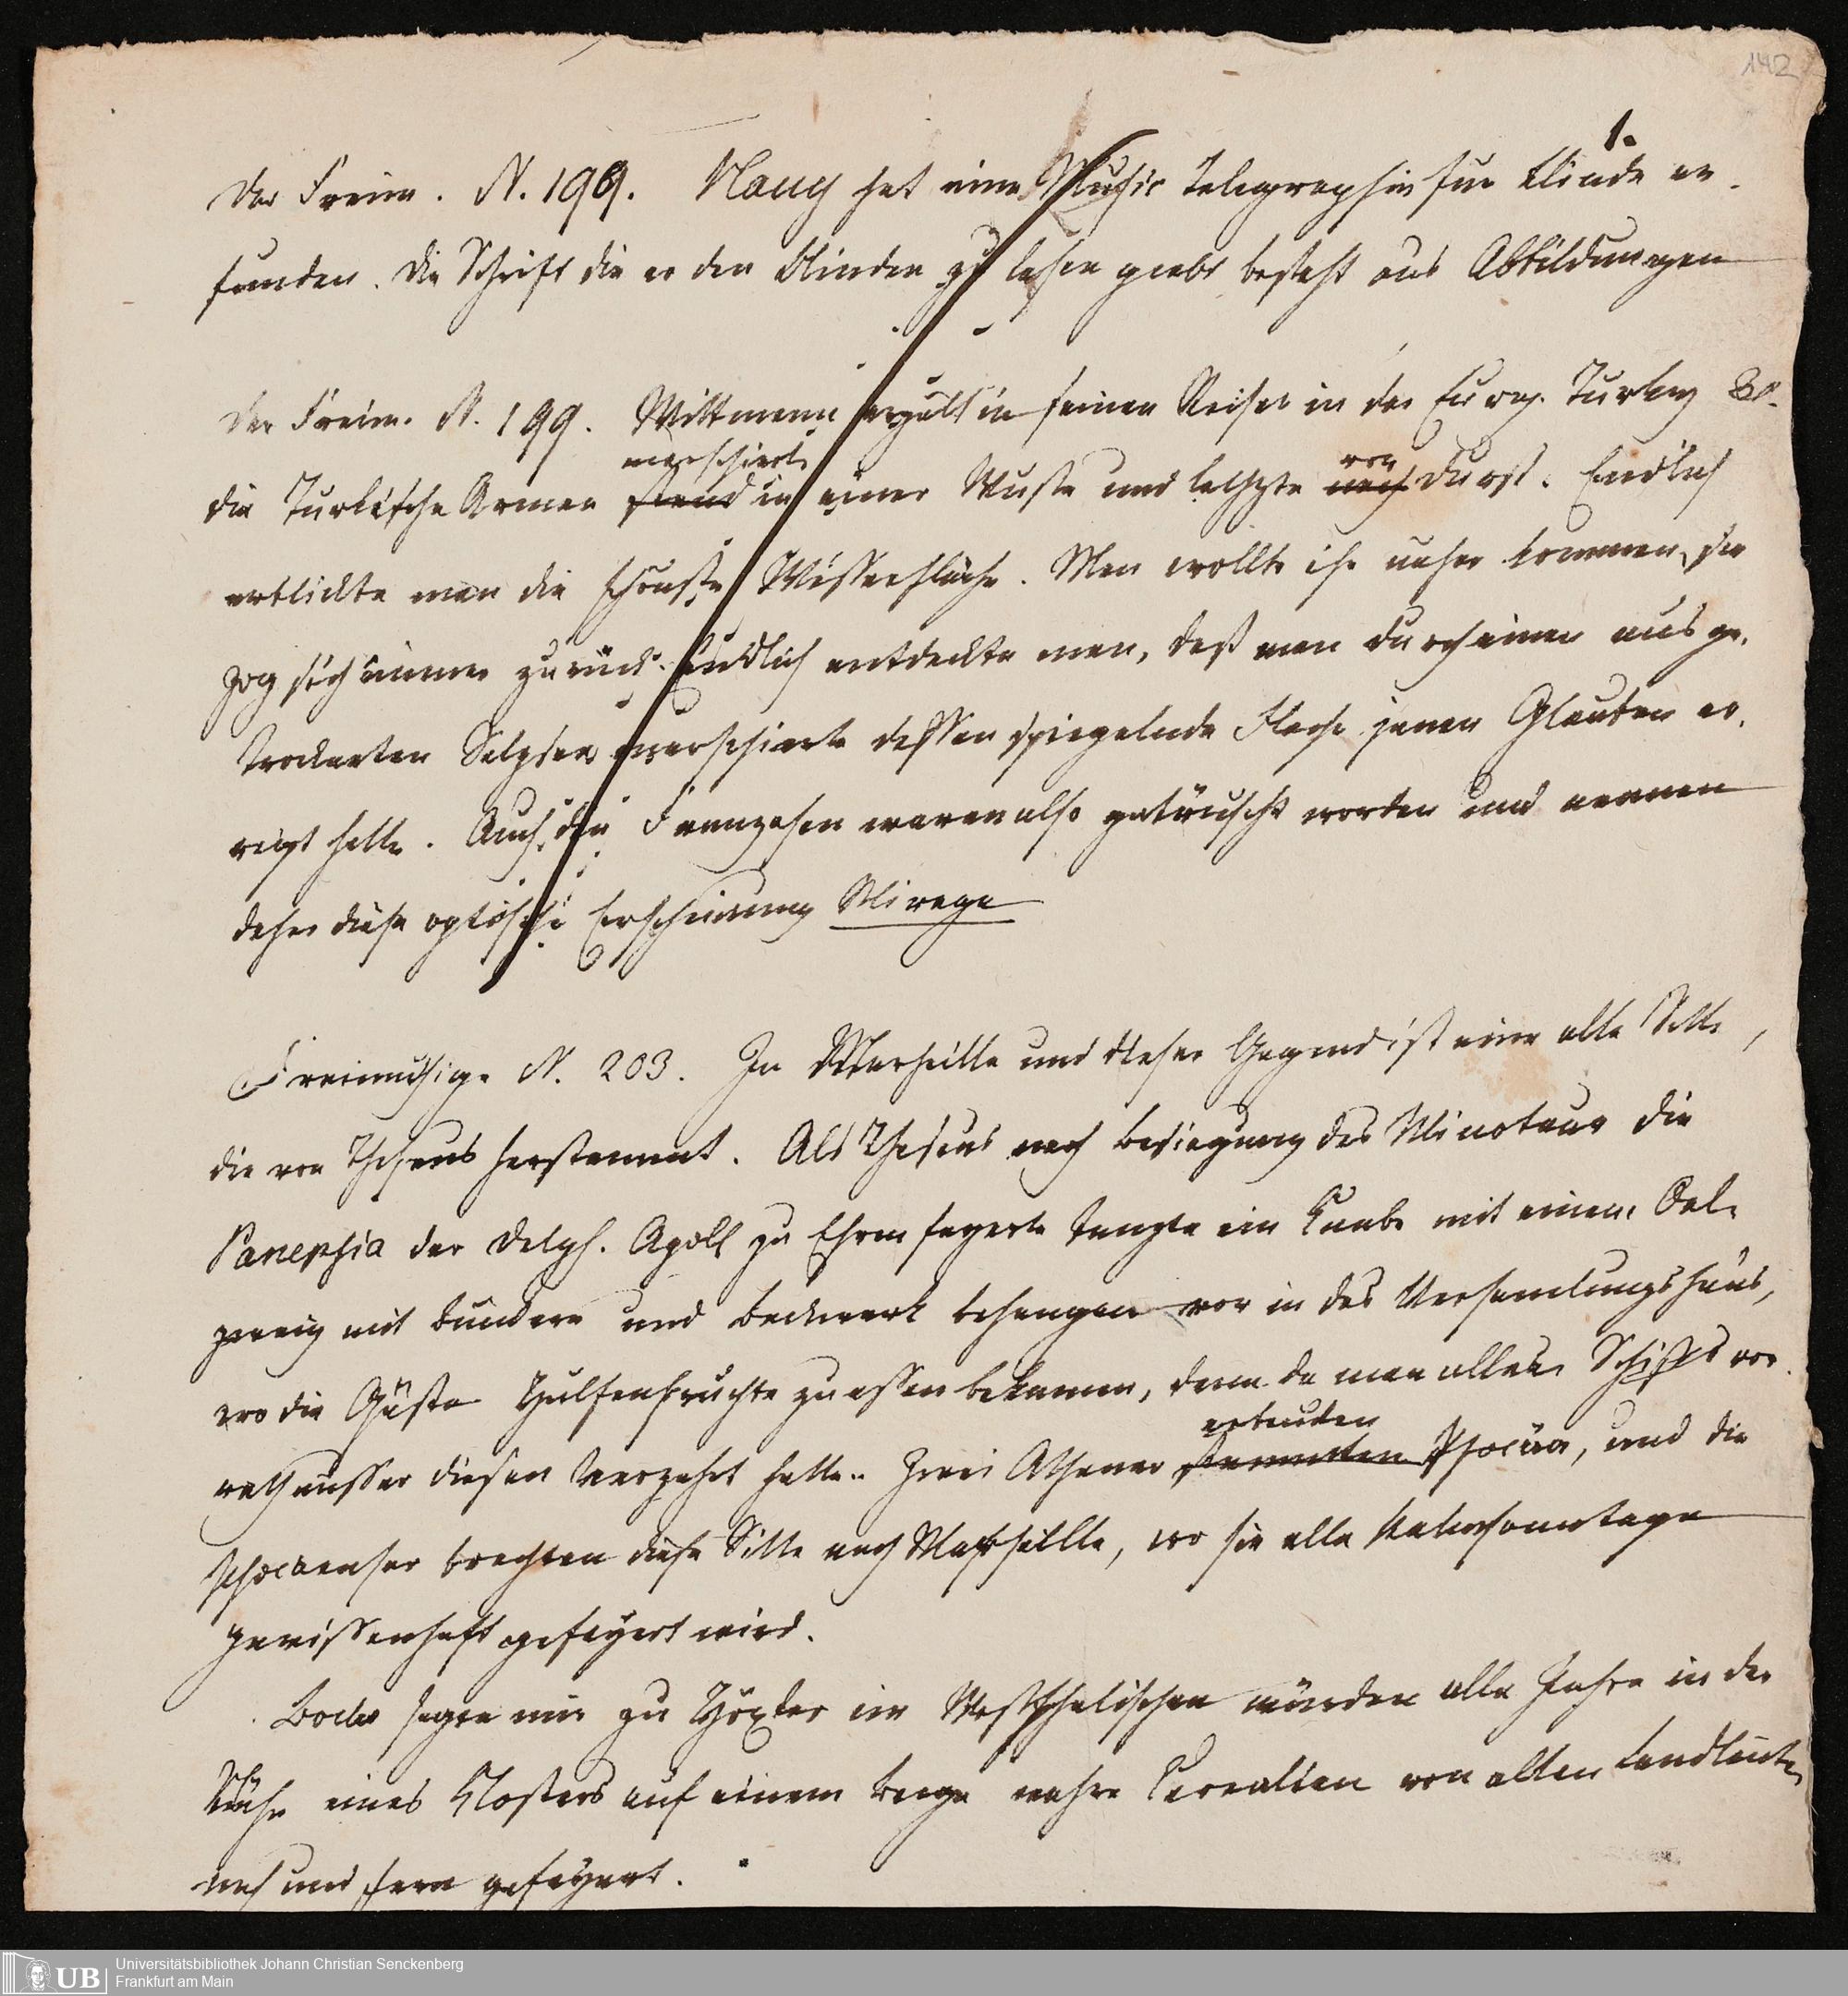 142
1.
Der Freim. N. 199. Naug hat eine Music Telegraphie für Blinde er-
funden. Die Schrift die er den Blinden zu lesen giebt besteht aus Abbildungen
Der Freim. N. 199. Wittmann erzält in seinen Reisen in der Europ. Turkey
marschirte
die Turkische Armee stand in einer Wuste und lechzte nach Durst. Endlich
von
erblickte man die schönste Wasserfläche. Man wollte ihr naher kommen, sie
zog sich immer zurück. Endlich entdeckte man, daß man durch einen ausge-
trockneten Salzsee marschierte dessen spiegelnde Flache jenen Glauben er-
regt hatte. Auch die Franzosen waren also getäuscht worden und nennen
daher diese optische Erscheinung Mirage
Freimuthige N. 203. In Marseille und dieser Gegend ist eine alte Sitte,
die von Theseus herstammt. Als Theseus nach Besiegung des Minotaur die
Panepsia der Delph. Apoll zu Ehren feyerte tanzte ein Knabe mit einem Oel-
zweig mit Bändern und Backwerk behangen vor in das Versamlungshaus,
wo die Gäste Hülsenfruchte zu essen bekamen, denn da man allen Schiffsvor-
rath ausser diesen verzehrt hatte. Zwei Athener stammten Phocäa, und die
erbauten
Phocaenser brachten diese Sitte nach Marseille, wo sie alle Palmsonntage
gewissenhaft gefeyert wird.
Bode sagte mir zu Höxter im Westphalischen würden alle Jahre in der
Nähe eines Klosters auf einem Berge wahre Cerealien von allen Landleuten
nah und fern gefeyert.
UB
Universitätsbibliothek Johann Christian Senckenberg
Frankfurt am Main